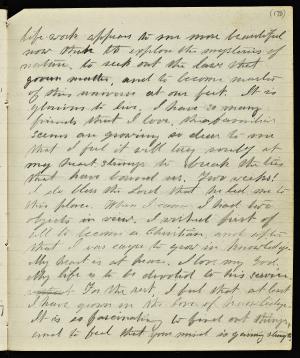 (173)
life work appears to me more beautiful
now than to explore the mysteries of
nature, to seek out the laws that
govern matter, and to become master
of this universe at our feet. It is
glorious to live. I have so many
friends that I love, these
seem are growing so dear to me
that I feel it will tug sorely at
my heart strings to break the ties
that have bound us. Two weeks!
I do bless the Lord that he led me to
this place. When I came I had two
objects in view. I wished first of
all to become a Christian, and after
that I was eager to grow in knowledge.
My heart is at peace. I love my God.
My life is to be devoted to his service
For the rest, I feel that at last
I have grown in the love of knowledge.
It is so fascinating to find out things,
and to feel that your mind is gaining strength